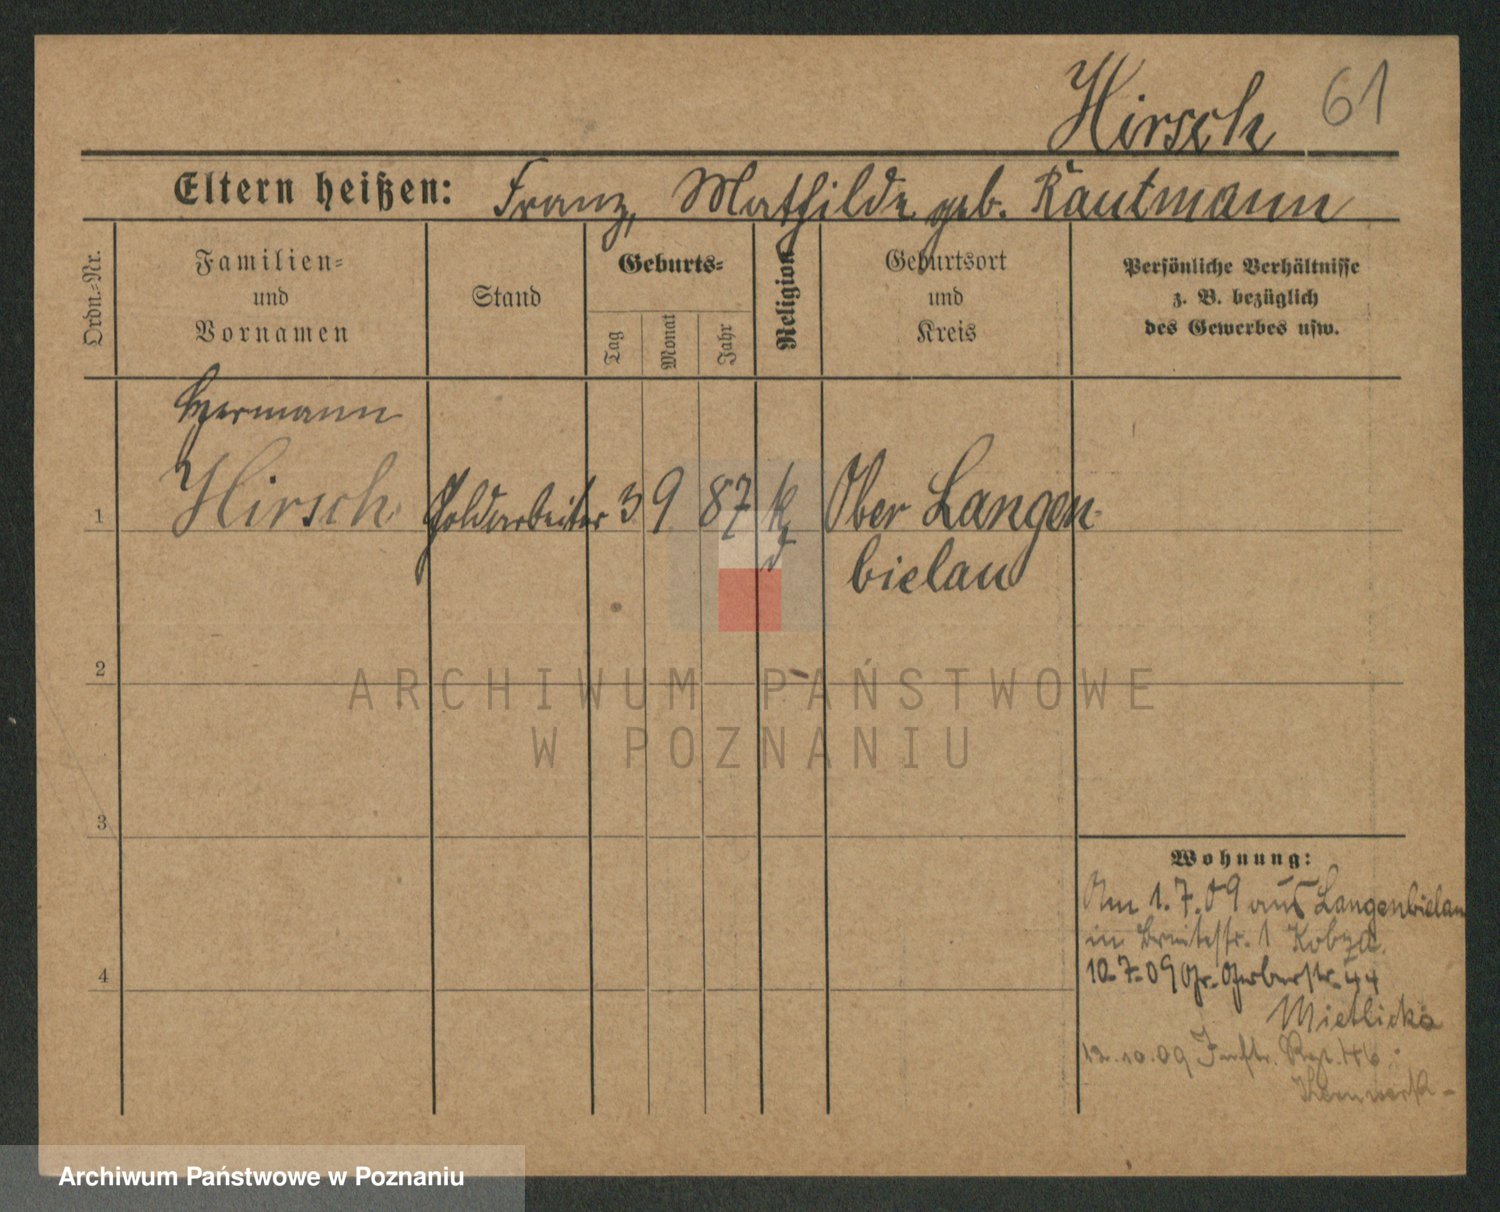 Hirsch 61
Eltern heißen: Franz, Mathilde geb. Kautmann
Ordn.-Nr.
Familien-
und
Vornamen
Stand
Geburts-
Tag
Monat
Jahr
Religion
Geburtsort
und
Kreis
Persönliche Verhältnisse
z. B. bezüglich
des Gewerbes usw.
Hermann
1 Hirsch Goldarbeiter 3 9 87 k Ober Langen-
bielau
2
3
4
Wohnung:
Am 1.7.09 aus Langenbielau
in Breitestr. 1 Kobza.
10.7.09 Gr. Gerberstr. 44
Mielicka
12.10.09 Inftr. Rgt. 46
Kernwerk-
ARCHIWUM PAŃSTWOWE
W POZNANIU
Archiwum Państwowe w Poznaniu